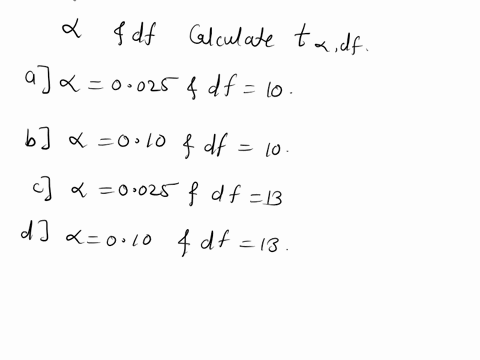 α & df Calculate tα,df.
a] α = 0.025 & df = 10.
b] α = 0.10 & df = 10.
c] α = 0.025 & df = 13
d] α = 0.10 & df = 13.